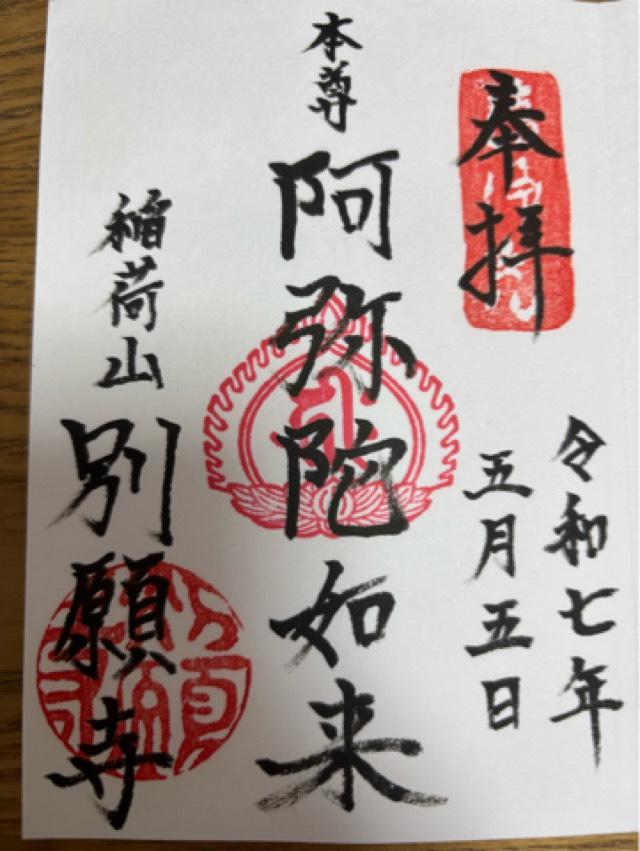 奉拝
令和七年
五月五日
本尊
阿弥陀如来
稲荷山
別願寺